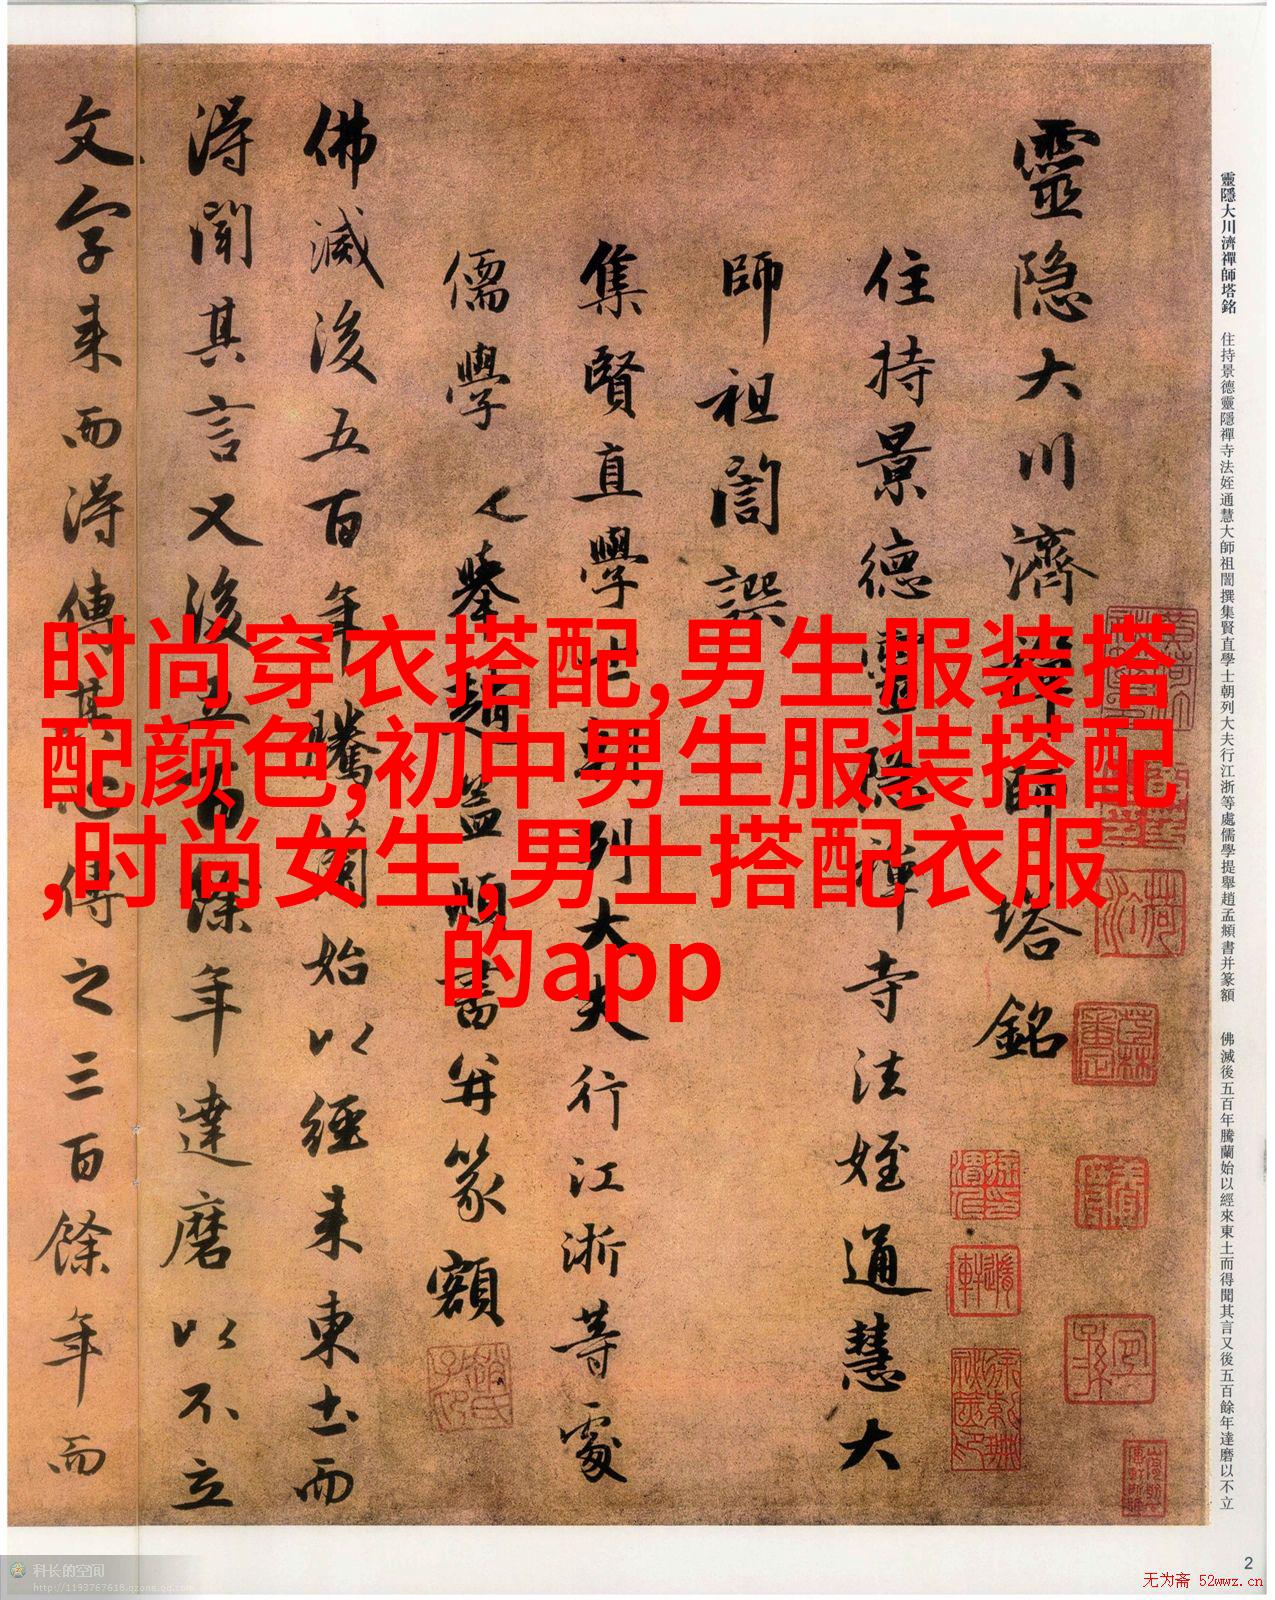 靈隱大川濟禪師塔銘 住持景德靈隱禪寺法姪通慧大師祖誾撰集賢直學士朝列大夫行江浙等處儒學提舉趙孟頫書并篆額 佛滅後五百年騰蘭始以經來東土而得聞其言又後五百餘年達磨以不立
靈隐大川濟禪師塔銘
住持景德靈隐禪寺法姪通慧大
師祖誾譔
集賢直學士朝列大夫行江浙等處
儒學舉趙孟頫書并篆額
佛滅後五百年騰蘭始以經来東土而
得聞其言又後五百餘年達磨以不立
文字来而得傳其心傳之三百餘年而
时尚穿衣搭配,男生服装搭
配颜色,初中男生服装搭配
,时尚女生,男士搭配衣服
的app
2
科长的空间
http://1193767618.qzone.qq.com
无为斋 52wwz.cn